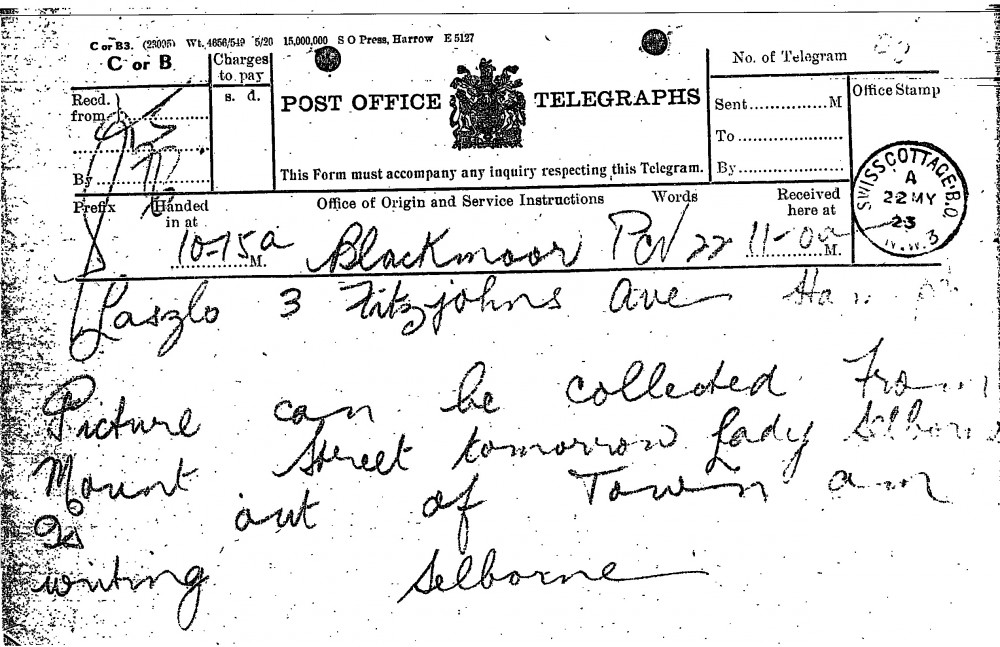 C or B3. (23095) Wt. 4656/549 5/20 15,000,000 S O Press, Harrow E 5127
C or B
Charges
to pay
s. d.
Recd.
from
By
POST OFFICE TELEGRAPHS
This Form must accompany any inquiry respecting this Telegram.
No. of Telegram
Sent M
To
By
Office Stamp
SWISS COTTAGE. B.O.
A
22 MY
23
N.W. 3
Prefix Handed
in at
Office of Origin and Service Instructions Words Received
here at
S 10-15 a M. Blackmoor 22 11-0 a M.
Laszlo 3 Fitzjohns Ave
Picture can be collected From
Mount Street tomorrow Lady Selborne
Is out of Town am
writing Selborne